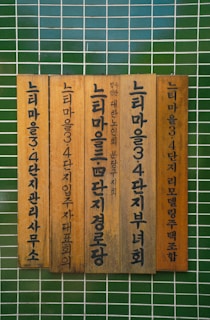 느티마을3·4단지관리사무소
느티마을3·4단지입주자대표회의
느티마을三·四단지경로당
대한노인회 분당구지회
느티마을3·4단지부녀회
느티마을3·4단지 리모델링주택조합